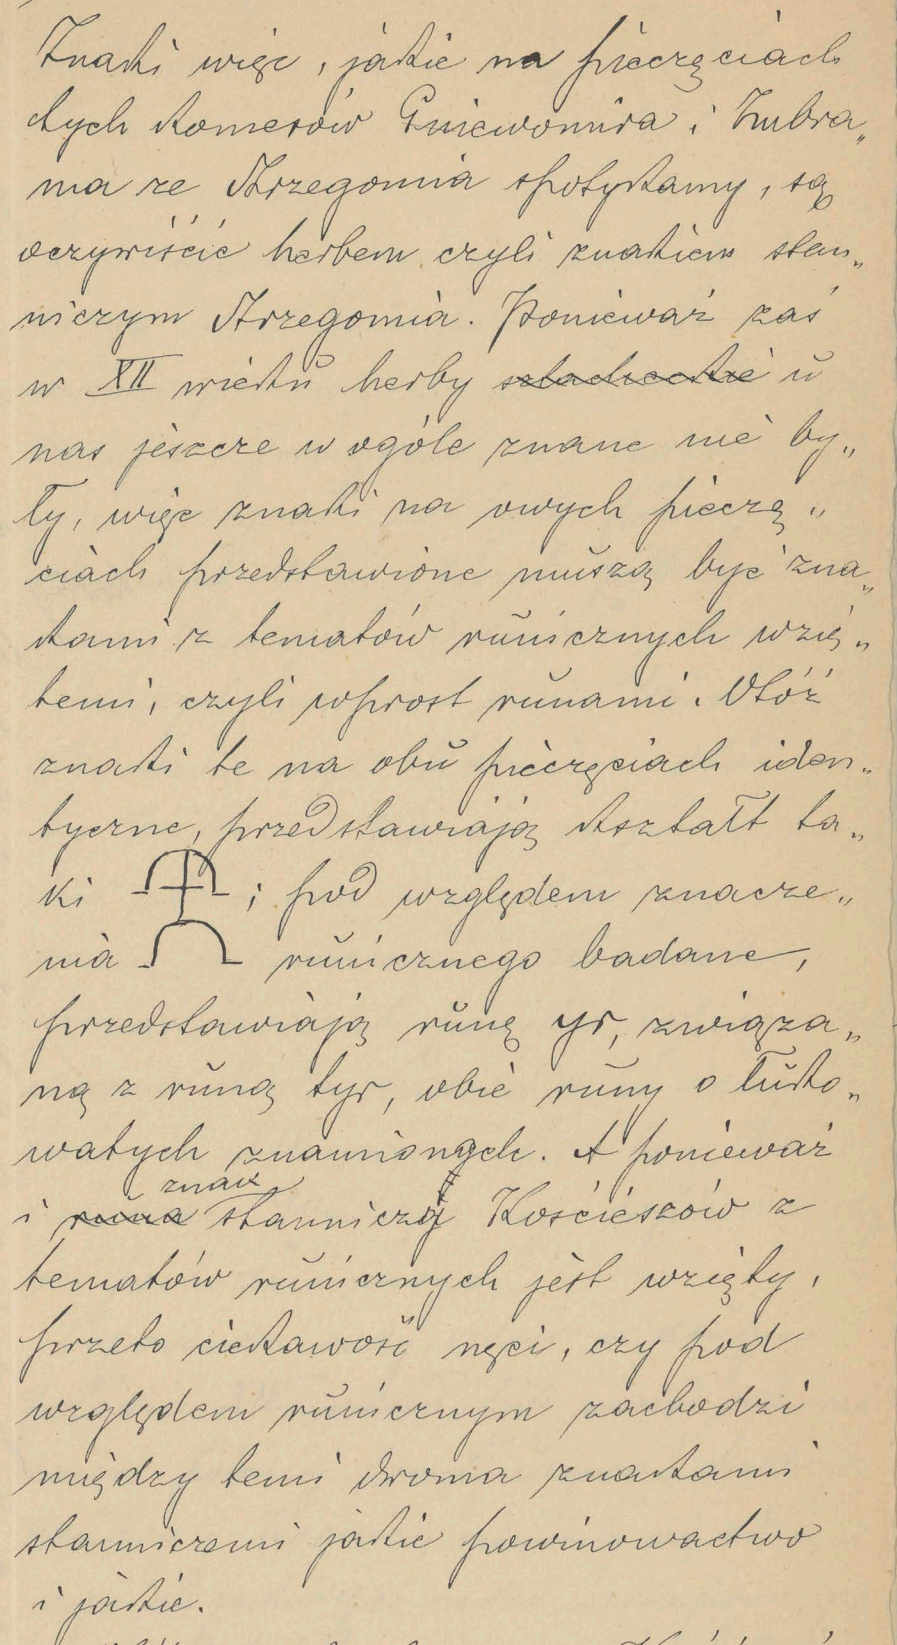 Znaki więc, jakie na pieczęciach
tych komesów Gniewomira i Imbra„
ma ze Strzegomia spotykamy, są
oczywiście herbem czyli znakiem stan„
niczym Strzegomia. Ponieważ zaś
w XII wieku herby szlacheckie u
nas jeszcze w ogóle znane nie by„
ły, więc znaki na owych pieczę„
ciach przedstawione muszą być zna„
kami z tematów runicznych wzię„
temi, czyli wprost runami. Otóż
znaki te na obu pieczęciach iden„
tyczne, przedstawiają kształt ta„
ki ; pod względem znacze„
nia runicznego badane,
przedstawiają runę yr, związa„
ną z runą tyr, obie runy o łuko„
watych znamionach. A ponieważ
znak
i runa stanniczy Kościeszów z
tematów runicznych jest wzięty,
przeto ciekawość nęci, czy pod
względem runicznym zachodzi
między temi dwoma znakami
stanniczemi jakie powinowactwo
i jakie.